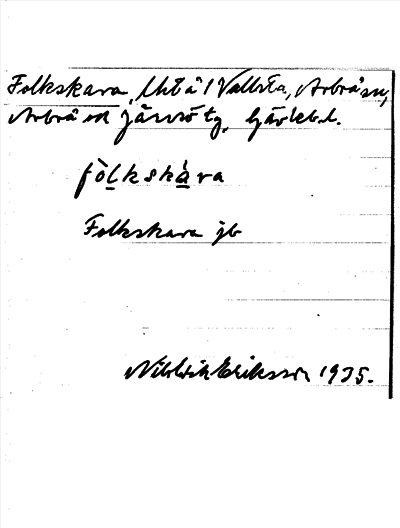 Folkskara, Utbä i Vallsta, Arbrå sn,
Arbrå och Järvsö tg, Gävlebl.
fo̱lkska̱ra
Folkskara jb
Eriksson 1935.